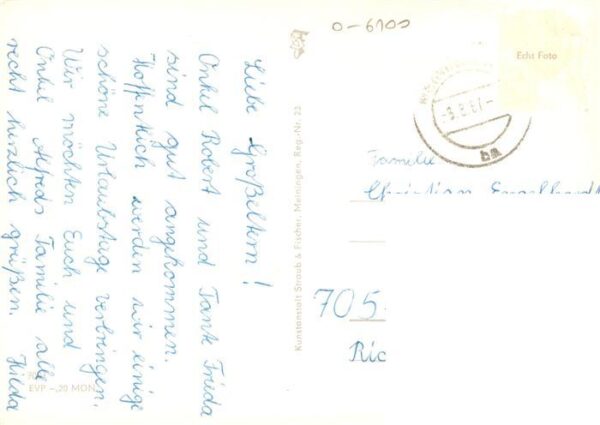 Liebe Großeltern!
Onkel Robert und Tante Frieda
sind gut angekommen.
Hoffentlich werden wir einige
schöne Urlaubstage verbringen.
Wir möchten Euch und
Onkel Alfreds Familie alle
recht herzlich grüßen. Hilda
EVP -,20 MDN
Kunstanstalt Straub & Fischer, Meiningen, Reg.-Nr. 22
0-6100
Echt Foto
-9.8.67-
ba
Familie
Christian
705
Ric